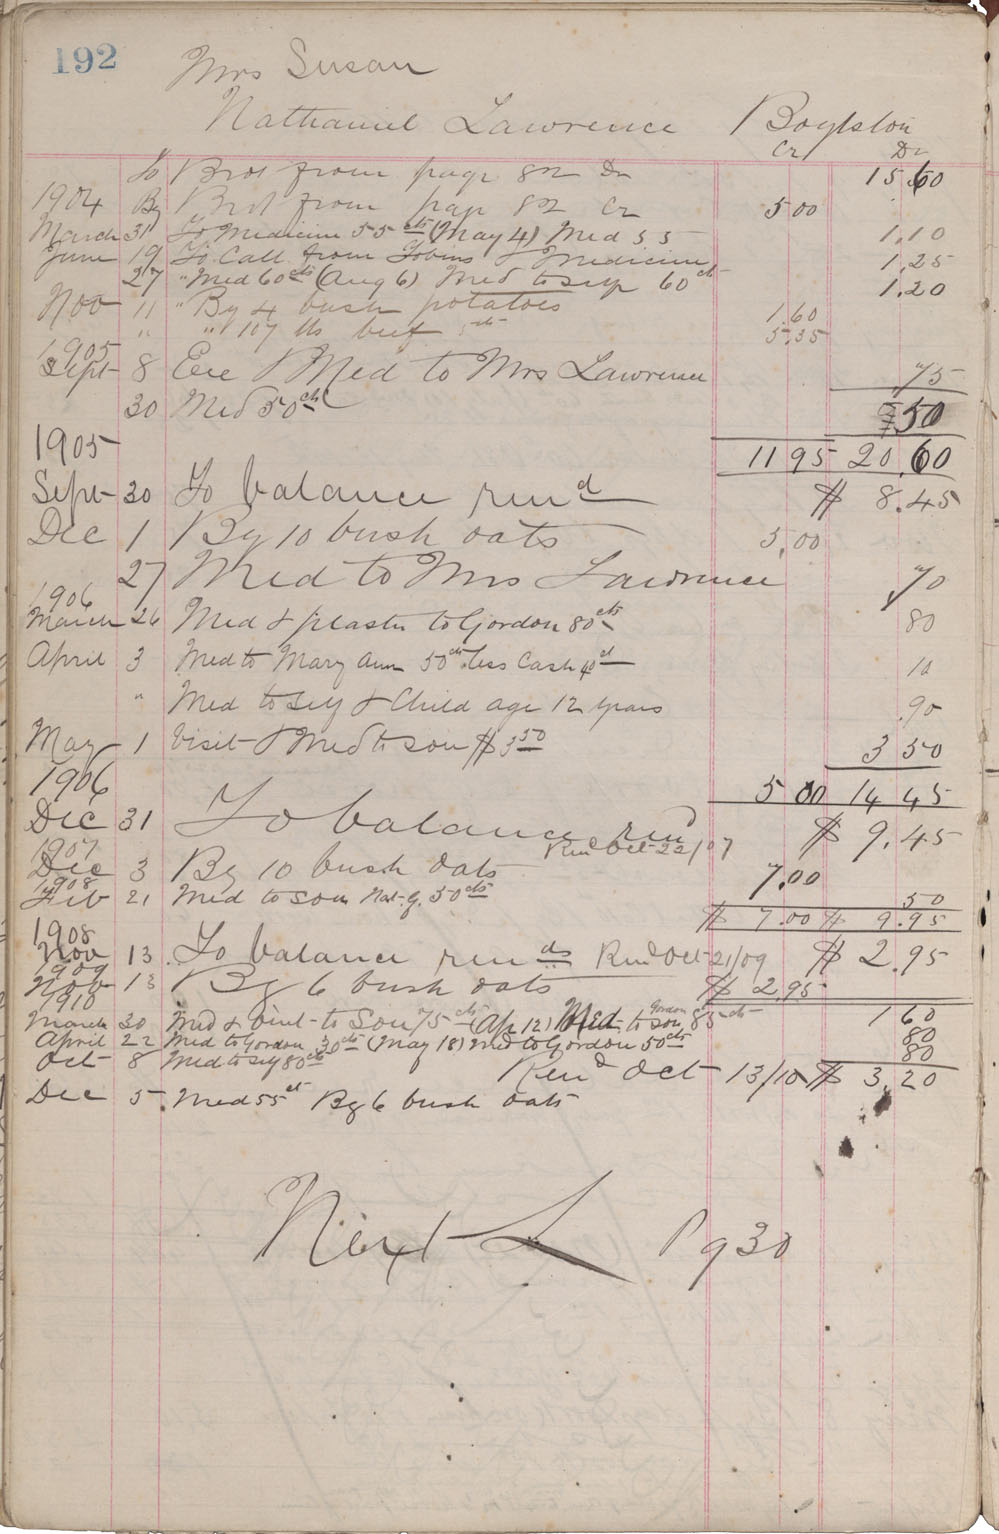 192
Mrs Susan
Nathaniel Lawrence Boylston
Cr Dr
To Brot from page 82 Dr 15 60
1904 By Brot from page 82 Cr 5 00
March 31 To Medicine 55 cts (May 4) Med 55 1.10
June 19 To Call from Tobins & Medicine 1.25
27 " Med 60 cts (Aug 6) Med to self 60 ct 1.20
Nov 11 " By 4 bush potatoes 1.60
" " 107 lbs beef 5 cts 5.35
1905
Sept 8 Ere & Med to Mrs Lawrence .75
30 Med 50 cts 50
1905 11 95 20.60
Sept 30 To balance rend $ 8.45
Dec 1 By 10 bush oats 5.00
27 Med to Mrs Lawrence 70
1906
March 26 Med & plaster to Gordon 80 cts 80
April 3 Med to Mary Ann 50 cts less Cash 40 ct 10
" Med to self & Child age 12 years .90
May 1 Visit & Med to son $3 50 3 50
1906 5 00 14 45
Dec 31 To balance rend $ 9.45
1907 Rend Oct 22/07
Dec 3 By 10 bush oats 7.00
1908
Feb 21 Med to son Nat. G. 50 cts 50
$ 7.00 $ 9.95
1908
Nov 13 To balance rends Rend Oct 21/09 $ 2.95
1909
Nov 13 By 6 bush oats $ 2.95
1910
March 30 Med & oint to Son 75 cts (Ap 12) Med to son Gordon 85 cts 1 60
April 22 Med to Gordon 30 cts (May 18) Med to Gordon 50 cts 80
Oct 8 Med to self 80 cts 80
Rend Oct 13/10 $ 3.20
Dec 5 Med 55 ct By 6 bush oats
Next L Pg 30